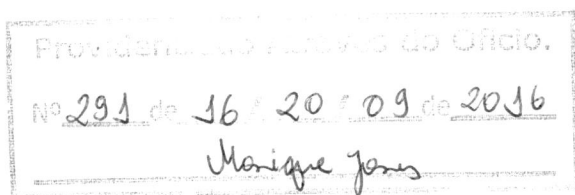 Providenciado Através do Ofício.
Nº 291 de 16 / 20 / 09 de 2016
Monique Jones